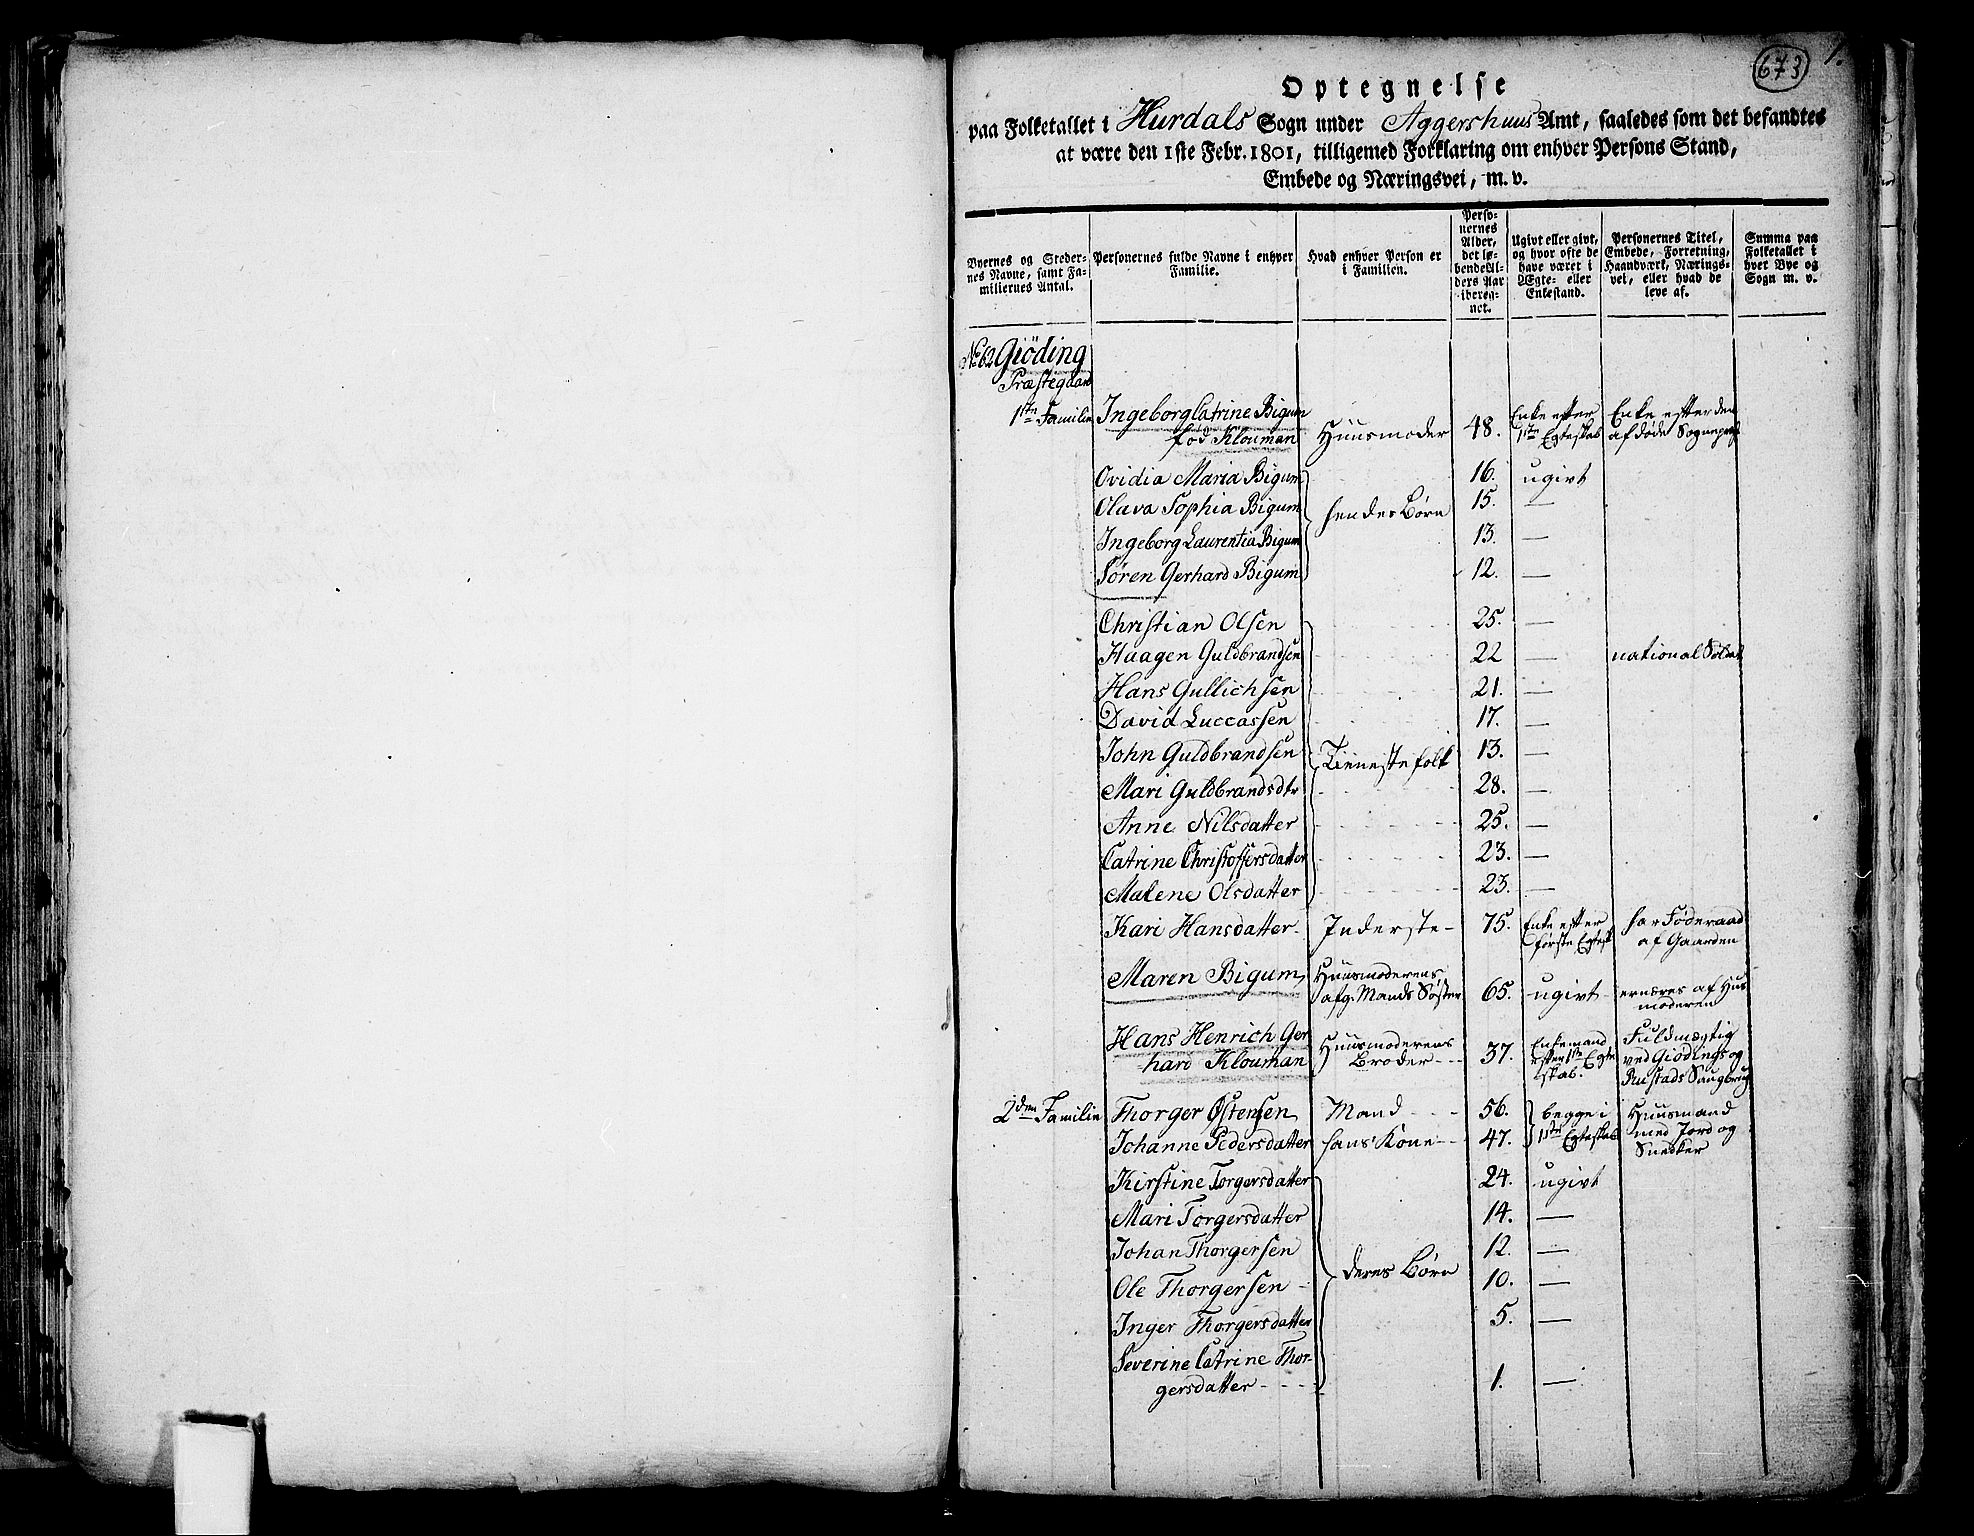 673
1.
Optegnelse
paa Folketallet i Hurdals Sogn under Aggershuus Amt, saaledes som det befandtes
at være den 1ste Febr. 1801, tilligemed Forklaring om enhver Persons Stand,
Embede og Næringsvei, m. v.
Byernes og Steder-
nes Navne, samt Fa-
miliernes Antal.
Personernes fulde Navne i enhver
Familie.
Hvad enhver Person er
i Familien.
Perso-
nernes
Alder,
det lø-
bende Al-
ders Aar
ibereg-
net.
Ugivt eller givt,
og hvor ofte de
have været i
Ægte- eller
Enkestand.
Personernes Titel,
Embede, Forretning,
Haandværk, Nærings-
vei, eller hvad de
leve af.
Summa paa
Folketallet i
hver Bye og
Sogn m. v.
No 62 Giöding
Præstegaard
1ste Familie Ingeborg Catrine Bigum Enke efter Enke efter den
fød Klouman Huusmoder 48. 1ste Egteskab afdøde Sognepræst
Ovidia Maria Bigum 16. ugivt
Olava Sophia Bigum hendes Børn 15. —
Ingeborg Laurentia Bigum 13. —
Søren Gerhard Bigum 12. —
Christian Olsen 25. —
Haagen Guldbrandsen 22 — national Soldat
Hans Gullichsen 21. —
David Luccassen 17. —
John Guldbrandsen Tienestefolk 13. —
Mari Guldbrandsdtr 28. —
Anne Nilsdatter 25. —
Catrine Christoffersdatter 23. —
Malene Olsdatter 23. —
Kari Hansdatter Inderste 75. Enke efter har Føderaad
første Egtesk af Gaarden
Maren Bigum Huusmoderens
afg. Mands Søster 65. ugivt ernæres af Hus
moderen
Hans Henrich Ger Huusmoderens 37. Enkemand Fuldmægtig
hard Klouman Broder efter 1ste Egte ved Giödings og
skab. Rustads Saugbrug
2den Familie Thorger Østensen Mand 56. begge i Huusmand
Johanne Pedersdatter hans Kone 47. 1ste Egteskab med Jord og
Snedker
Kirstine Torgersdatter 24. ugivt
Mari Torgersdatter 14. —
Johan Thorgersen 12. —
Ole Thorgersen deres Børn 10. —
Inger Thorgersdatter 5. —
Severine Catrine Thor-
gersdatter 1. —